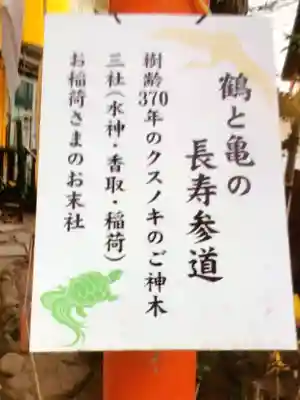 鶴と亀の
長寿参道
樹齢370年のクスノキのご神木
三社(水神・香取・稲荷)
お稲荷さまのお末社